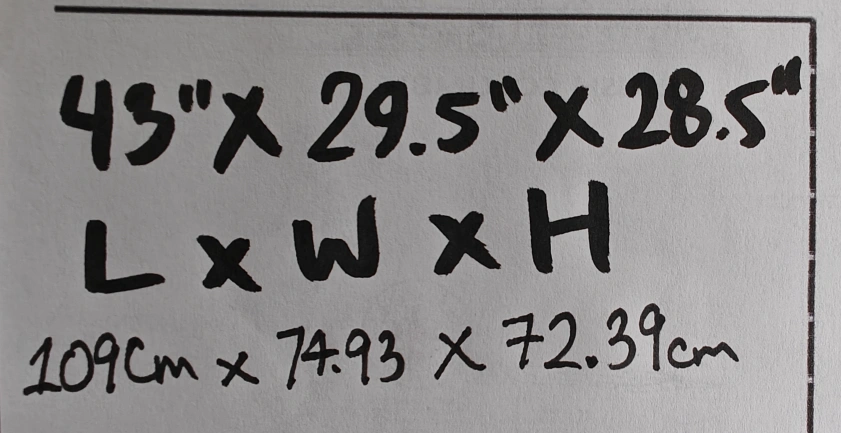 43" X 29.5" X 28.5"
L x W x H
109cm x 74.93 x 72.39cm